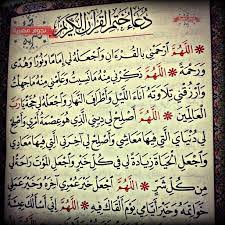 دُعَاءُ خَتْمِ الْقُرْآنِ الْكَرِيمِ
❋ اللَّهُمَّ ارْحَمْنِي بِالْقُرْءَانِ وَاجْعَلْهُ لِي إِمَامًا وَنُورًا وَهُدًى
وَرَحْمَةً ❋ اللَّهُمَّ ذَكِّرْنِي مِنْهُ مَا نَسِيتُ وَعَلِّمْنِي مِنْهُ مَا جَهِلْتُ
وَارْزُقْنِي تِلَاوَتَهُ آنَاءَ اللَّيْلِ وَأَطْرَافَ النَّهَارِ وَاجْعَلْهُ لِي حُجَّةً يَا رَبَّ
الْعَالَمِينَ ❋ اللَّهُمَّ أَصْلِحْ لِي دِينِي الَّذِي هُوَ عِصْمَةُ أَمْرِي وَأَصْلِحْ
لِي دُنْيَايَ الَّتِي فِيهَا مَعَاشِي وَأَصْلِحْ لِي آخِرَتِي الَّتِي فِيهَا مَعَادِي
وَاجْعَلِ الْحَيَاةَ زِيَادَةً لِي فِي كُلِّ خَيْرٍ وَاجْعَلِ الْمَوْتَ رَاحَةً لِي
مِنْ كُلِّ شَرٍّ ❋ اللَّهُمَّ اجْعَلْ خَيْرَ عُمْرِي آخِرَهُ وَخَيْرَ عَمَلِي
خَوَاتِمَهُ وَخَيْرَ أَيَّامِي يَوْمَ أَلْقَاكَ فِيهِ ❋ اللَّهُمَّ إِنِّي أَسْأَلُكَ عِيشَةً